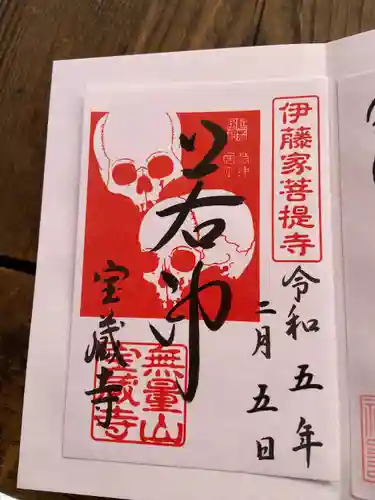 伊藤家菩提寺
令和五年
二月五日
若冲
宝蔵寺
無量山
宝蔵寺